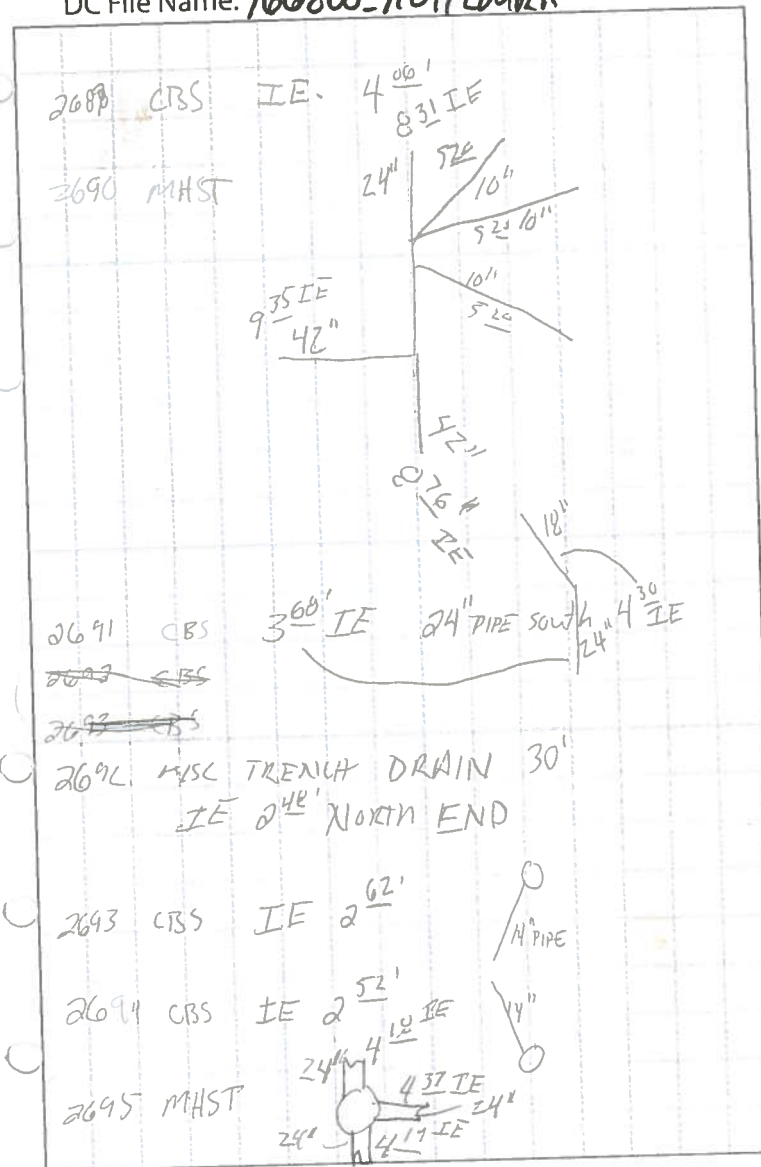 DC File Name:
CBS IE. 4 06'
8 31 IE
2690 MHST
24"
5 20
10"
5 20 10"
10"
5 20
9 35 IE
42"
42"
8 76
IE
18"
2691 CBS 3 60' IE 24" PIPE South 4 30 IE
24"
2692 MISC TRENCH DRAIN 30'
IE 2 48' NORTH END
2693 CBS IE 2 62'
PIPE
2694 CBS IE 2 52'
24" 4 18 IE
2695 MHST
4 37 IE
24"
24"
4 19 IE